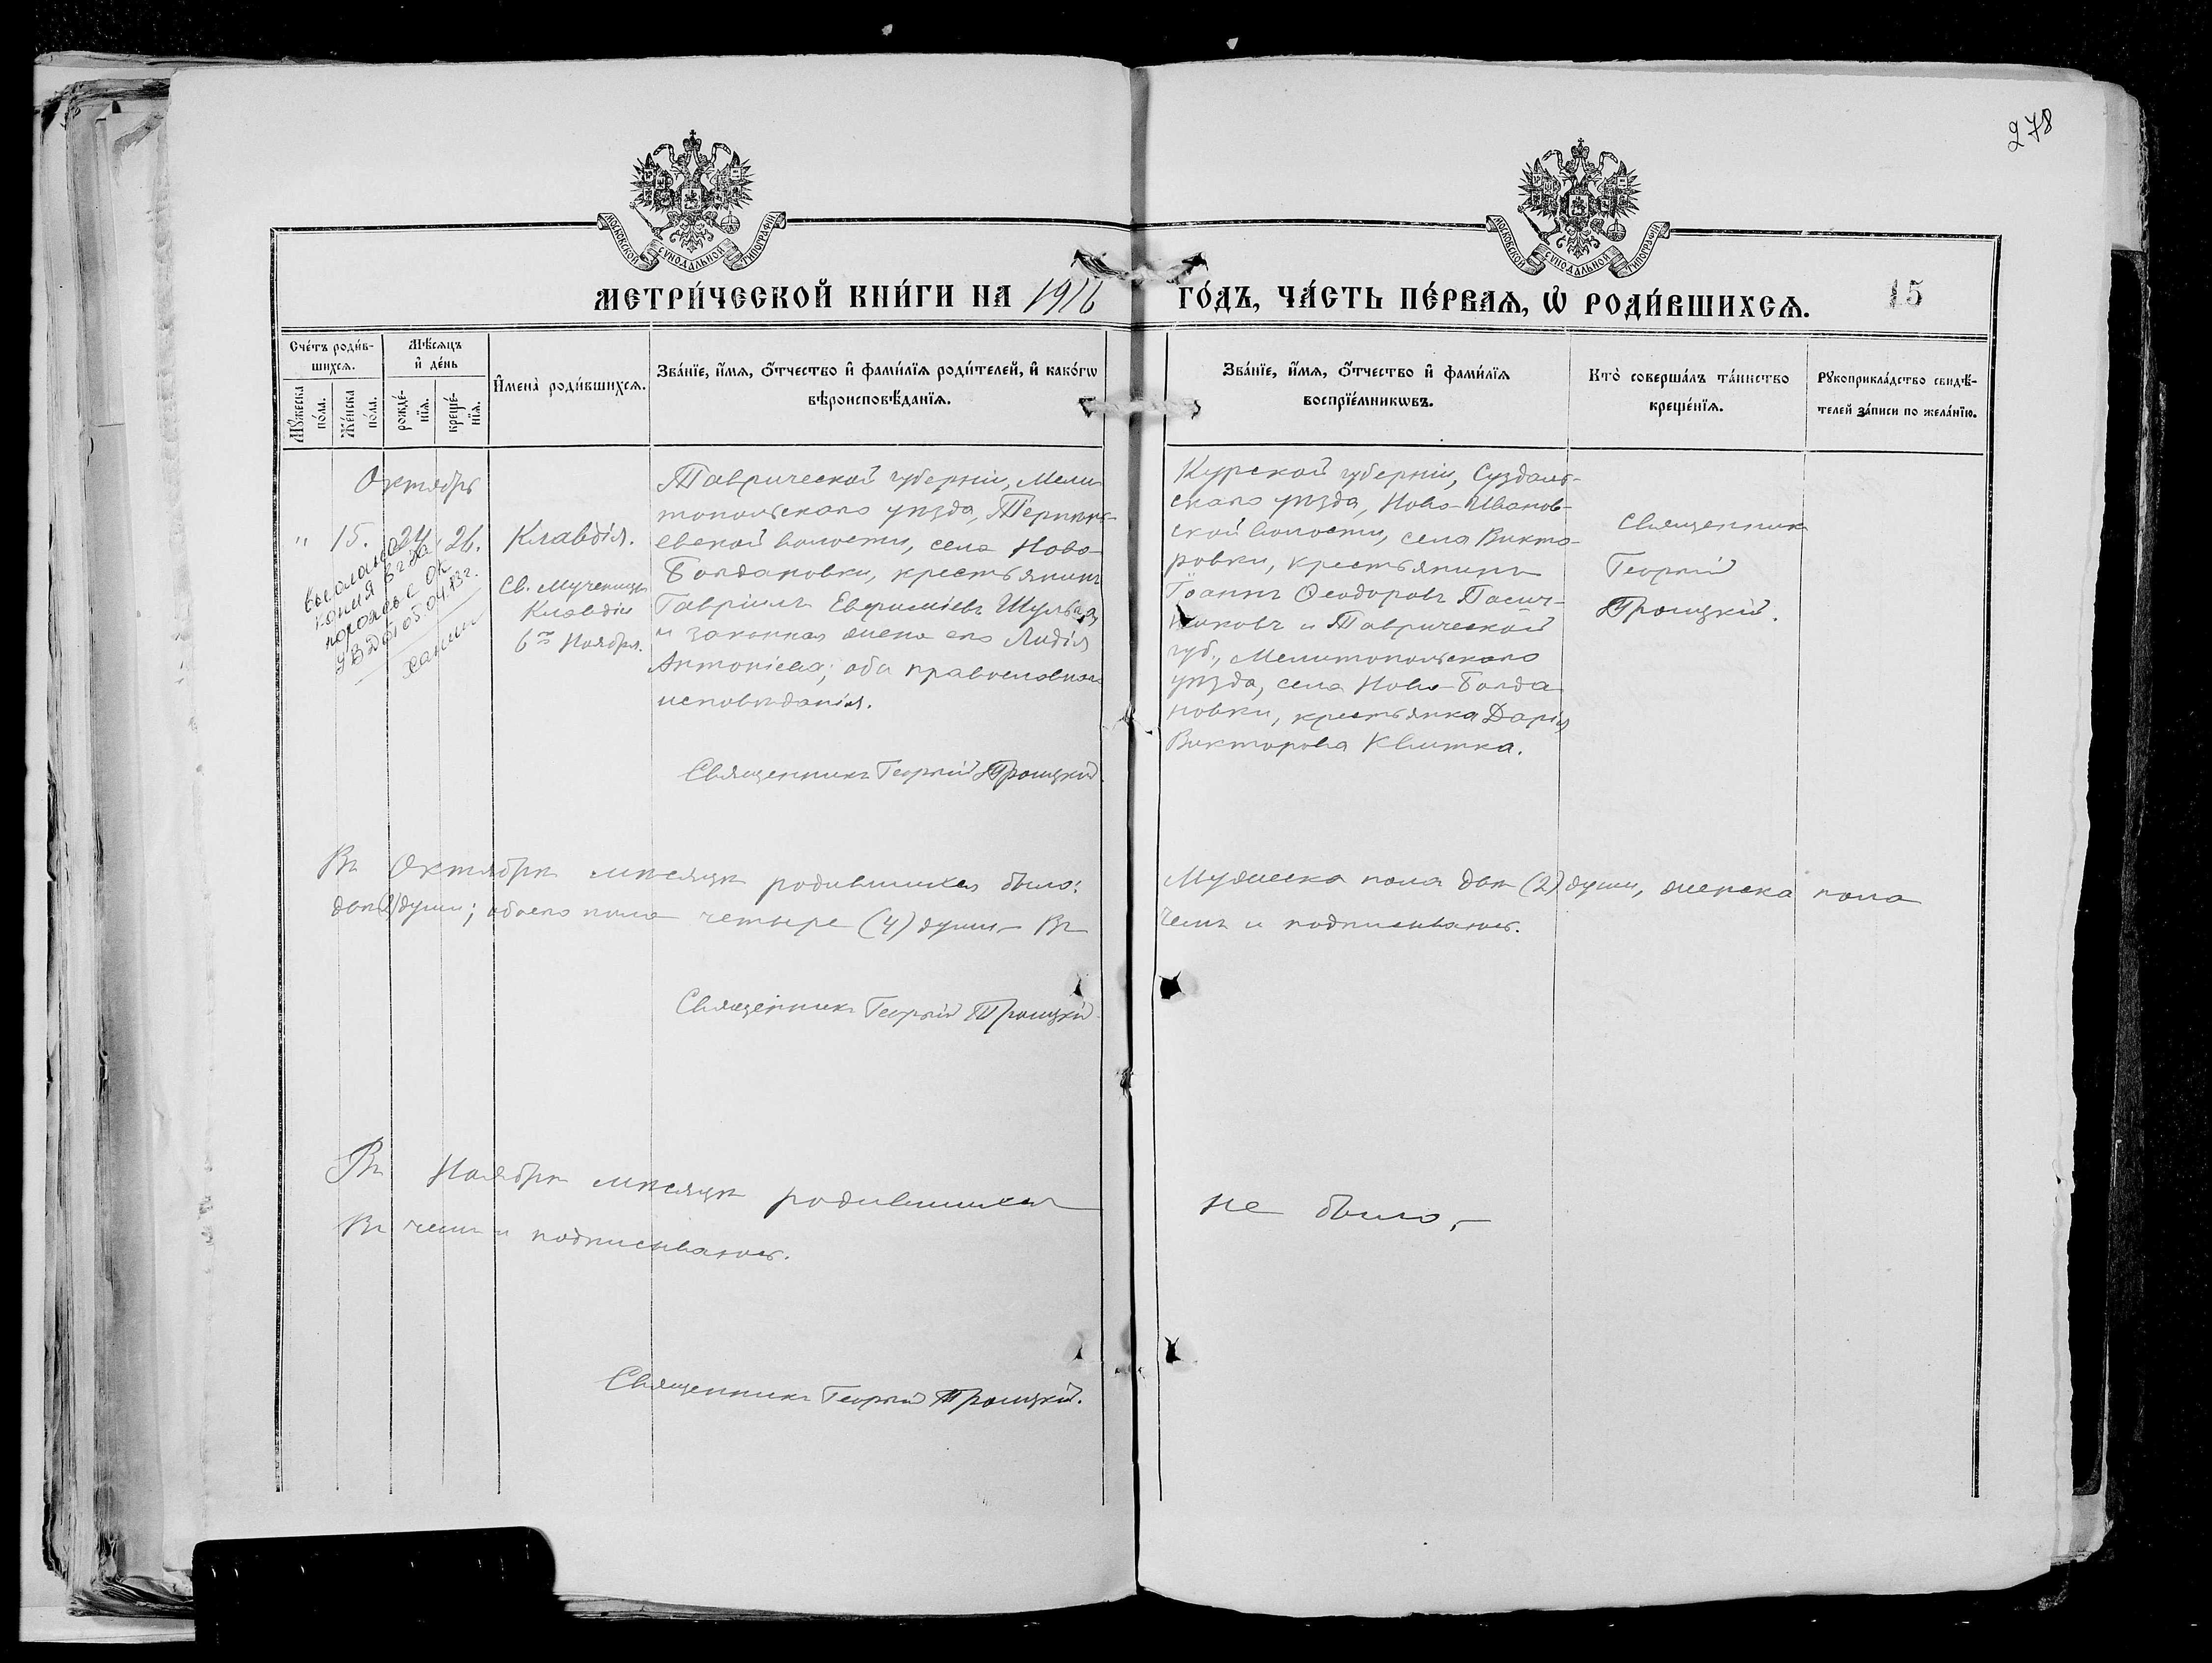 278
МОСКОВСКОЙ СУНОДАЛЬНОЙ ТИПОГРАФІИ
МОСКОВСКОЙ СУНОДАЛЬНОЙ ТИПОГРАФІИ
МЕТРИ́ЧЕСКОЙ КНИ́ГИ НА 1916
ГО́ДЪ, ЧА́СТЬ ПЕ́РВАѦ, Ѡ҆ РОДИ́ВШИХСѦ.
15
Сче́тъ роди́в-
шихсѧ.
Мѹ́жеска
по́ла.
Же́нска
по́ла.
Мѣ́сѧцъ
и҆ де́нь
рожде́-
нїѧ.
креще́-
нїѧ.
И҆мена̀ роди́вшихсѧ.
Зва́нїе, и҆́мѧ, ѻ҆́тчество и҆ фами́лїѧ роди́телей, и҆ како́гѡ
вѣроисповѣ́данїѧ.
Зва́нїе, и҆́мѧ, ѻ҆́тчество и҆ фами́лїѧ
воспрїе́мникѡвъ.
Кто̀ соверша́лъ та́инство
креще́нїѧ.
Рꙋкоприкла́дство свидѣ́-
телей за́писи по жела́нїю.
Октябрь
" 15. 24 26.
Клавдія.
Св. Мученицы
Клавдіи
6го Ноября.
выслана
копия в г.
УВД 01 05.04.83г.
Таврической губерніи, Мели-
топольскаго уѣзда,
евской волости, села Ново-
Богдановки, крестьянинъ
Гавріилъ Евфиміевъ Шульга
и законная жена его Лидія
Антоніева; оба православнаго
исповѣданія.
Священникъ Георгій Троицкій.
Курской губерніи, Суздаль-
скаго уѣзда, Ново-Иванов-
ской волости, села Викто-
ровки, крестьянинъ
Іоаннъ Ѳеодоровъ Пасич-
никовъ и Таврической
губ., Мелитопольскаго
уѣзда, села Ново-Богда-
новки, крестьянка Дарія
Викторова Квитка.
Священникъ
Георгій
Троицкій.
Въ Октябрѣ мѣсяцѣ родившихся было:
Мужеска пола двѣ (2) души, женска пола
двѣ (2) души; обоего пола четыре (4) души. Въ
чемъ и подписываюсь.
Священникъ Георгій Троицкій.
Въ Ноябрѣ мѣсяцѣ родившихся
не было,
Въ чемъ и подписываюсь.
Священникъ Георгій Троицкій.